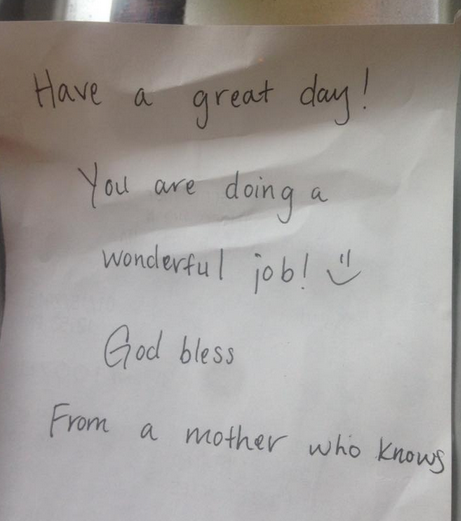 Have a great day!
You are doing a
wonderful job! :)
God bless
From a mother who knows